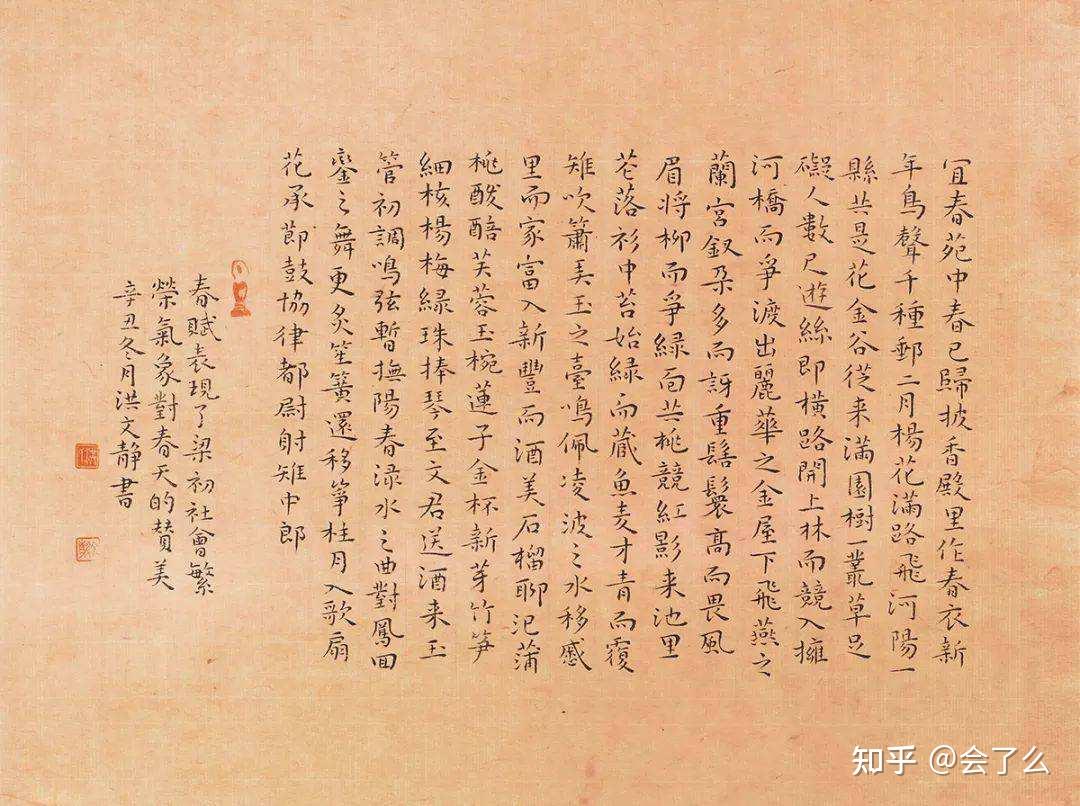 宜春苑中春已歸披香殿里作春衣新
年鳥聲千種郵二月楊花滿路飛河陽一
縣共是花金谷從来滿園樹一叢草足
礙人數尺遊絲即橫路開上林而競入擁
河橋而爭渡出麗華之金屋下飛燕之
蘭宮釵朵多而訝重髻鬟髙而畏風
眉将柳而爭緑面共桃競紅影来池里
花落衫中苔始緑而藏魚麦才青而覆
雉吹簫美玉之臺鳴佩凌波之水移慼
里而家富入新豐而酒美石榴聊汜蒲
桃酦醅芙蓉玉椀蓮子金杯新芽竹笋
細核楊梅緑珠捧琴至文君送酒来玉
管初調鳴弦暫撫陽春渌水之曲對鳳回
鸞之舞更炙笙簧還移箏柱月入歌扇
花承節鼓協律都尉射雉中郎
春賦表現了梁初社會繁
榮氣象對春天的賛美
辛丑冬月洪文靜書
知乎 @会了么